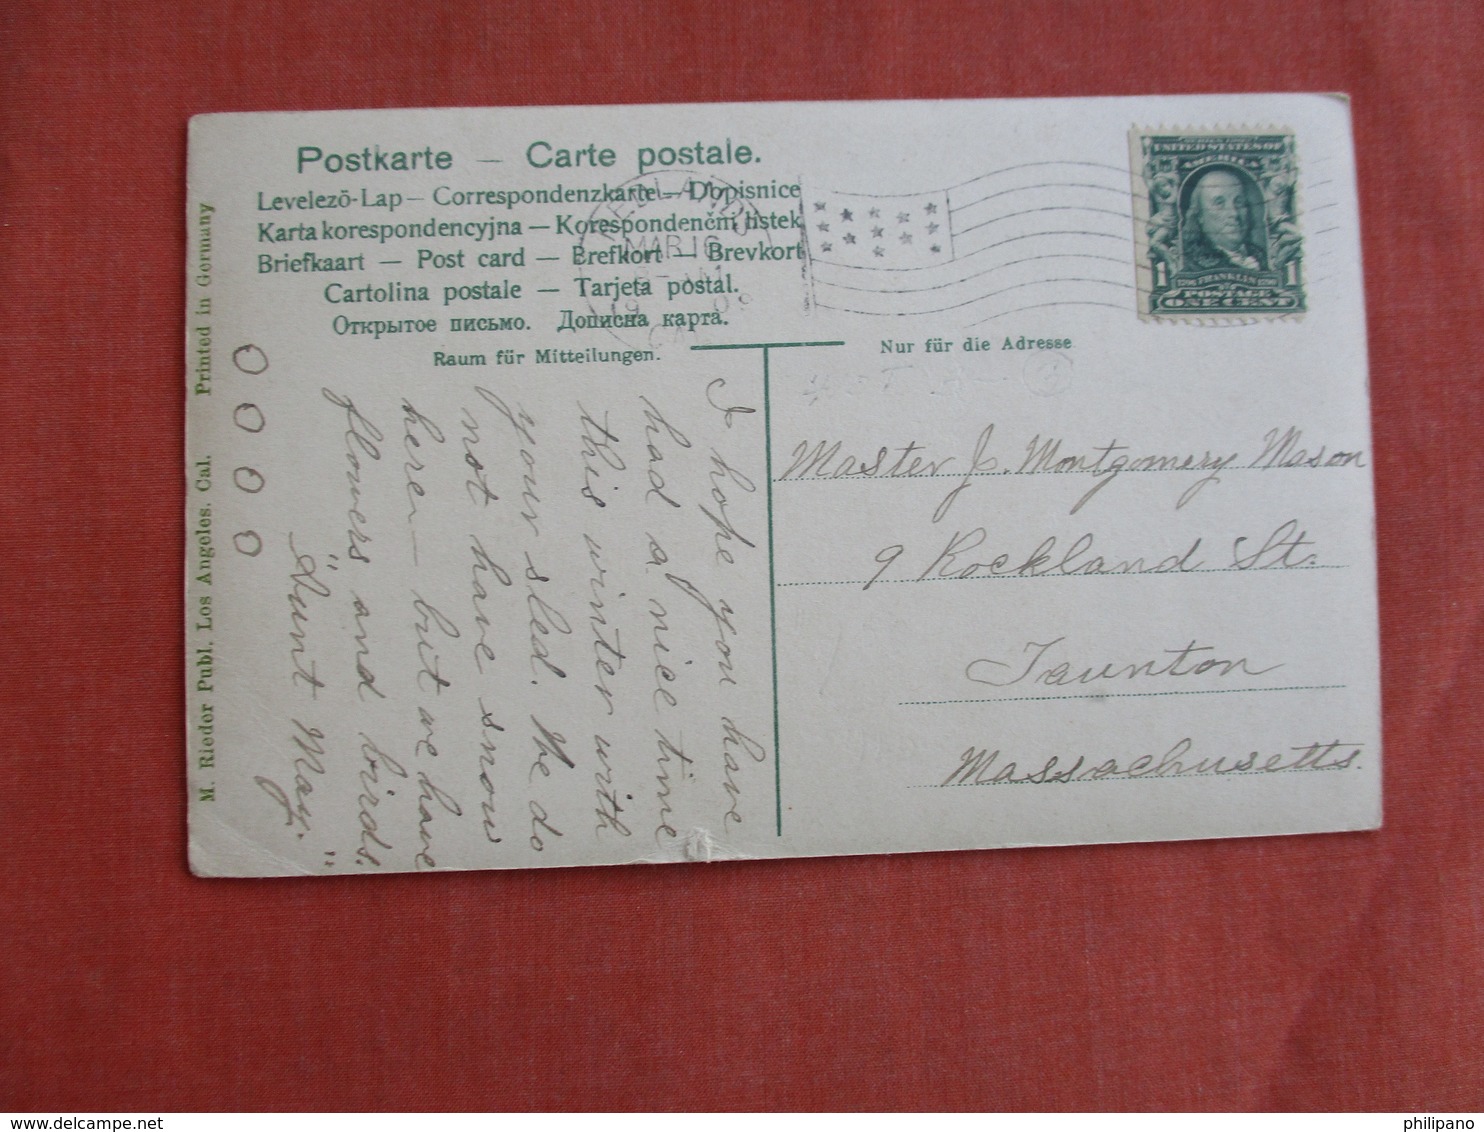 Postkarte — Carte postale.
Levelező-Lap — Correspondenzkarte — Dopisnice
Karta korespondencyjna — Korespondenční lístek
Briefkaart — Post card — Brefkort — Brevkort
Cartolina postale — Tarjeta postal.
Открытое письмо. Дописна карта.
Raum für Mitteilungen.
Nur für die Adresse
REDLANDS
MAR 16
CAL
UNITED STATES OF
AMERICA
1 FRANKLIN 1
ONE CENT
I hope you have
had a nice time
this winter with
your sled. We do
not have snow
here — but we have
flowers and birds.
"Aunt May."
O O O O
Master J. Montgomery Mason
9 Rockland St.
Taunton
Massachusetts.
M. Rieder Publ. Los Angeles. Cal. Printed in Germany
philipano
delcampe.net